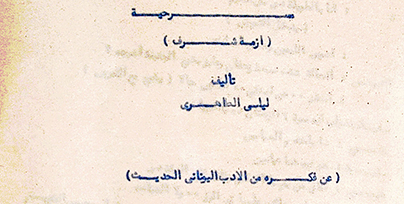 مسرحية
( أزمة شرف )
تأليف
ليلى الطاهرى
( عن فكره من الادب اليونانى الحديث )